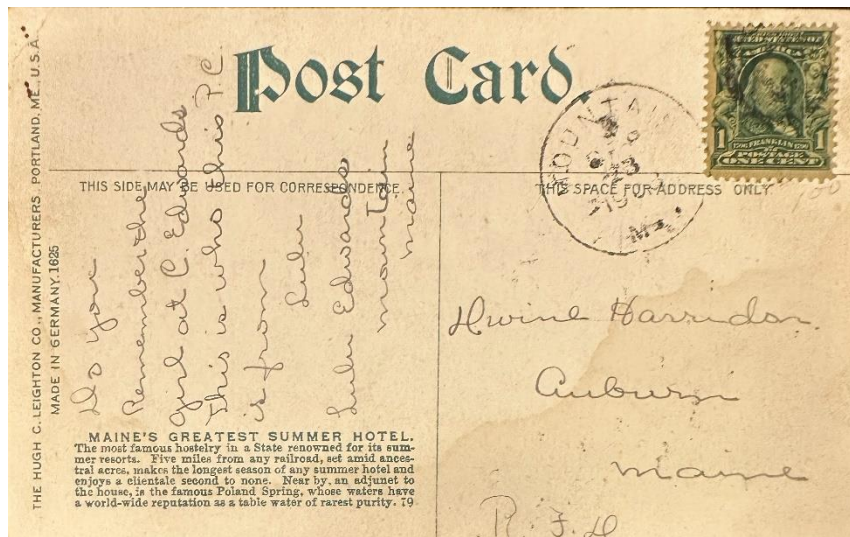 Post Card
THE HUGH C. LEIGHTON CO., MANUFACTURERS, PORTLAND, ME., U.S.A.
MADE IN GERMANY. 1625
THIS SIDE MAY BE USED FOR CORRESPONDENCE
THIS SPACE FOR ADDRESS ONLY
MOUNTAIN
ME.
1 1
1706 FRANKLIN 1790
POSTAGE
ONE CENT
Do you
Remember the
girl at C. Edwards
This is who this P.C
is from
Lulu
Lulu Edwards
mountain
maine
Harridon
Auburn
maine
R. F. D
MAINE'S GREATEST SUMMER HOTEL.
The most famous hostelry in a State renowned for its sum-
mer resorts. Five miles from any railroad, set amid ances-
tral acres, makes the longest season of any summer hotel and
enjoys a clientale second to none. Near by, an adjunct to
the house, is the famous Poland Spring, whose waters have
a world-wide reputation as a table water of rarest purity. 79